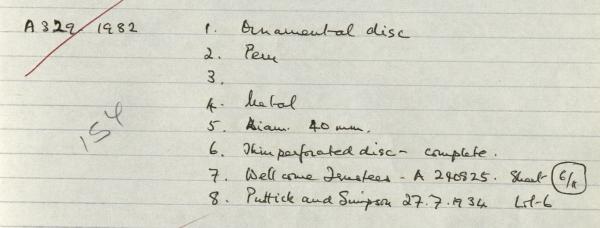 A 329. 1982
1. Ornamental disc
2. Peru
3.
4. Metal
154
5. Diam. 40 mm.
6. Thin perforated disc - complete.
7. Wellcome Trustees - A 290825. Sheet 6/11
8. Puttick and Simpson 27.7.1934 Lot-6